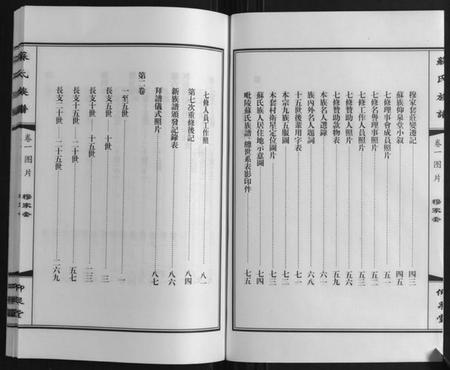 蘇氏族譜
卷一图片
穆家套
仰泉堂
穆家套莊變遷記 四三
蘇族仰泉堂小叙 四五
七修理事會成員照片 五一
七修名譽理事照片
七修工作人員照片
七修贊助人照片 五六
七修贊助錢物表 五九
本族名人選錄 六一
族內外名人題詞 六八
十五世後輩用字表 七一
本宗九族五服圖
木套村衛星定位圖片
蘇氏族人居住地示意圖 七四
毗陵蘇氏族譜、總世系表影印件 七五
七修人員工作照 八一
第七次重修後記 八四
新族譜頒發記錄表 八六
拜譜儀式照片 八七
第二卷
一至五世 一
長支五世 十世 三
長支十世 十五世 二三
長支十五世 二十世 五七
長支二十世 二十五世 二六九
蘇氏族譜
卷一图片
穆家套
仰泉堂